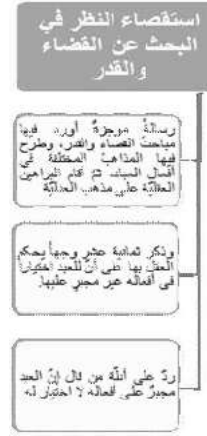 استقصاء النظر في
البحث عن القضاء
والقدر
رسالة موجزة أورد فيها
مباحث القضاء والقدر، وطرح
فيها المذاهب المختلفة في
أفعال العباد، ثم أقام البراهين
العقلية على مذهب العدلية
وذكر ثمانية عشر وجهاً يحكم
العقل بها على أنّ للعبد اختياراً
في أفعاله غير مجبر عليها.
ردّ على أدلّة من قال إنّ العبد
مجبرٌ على أفعاله لا اختيار له